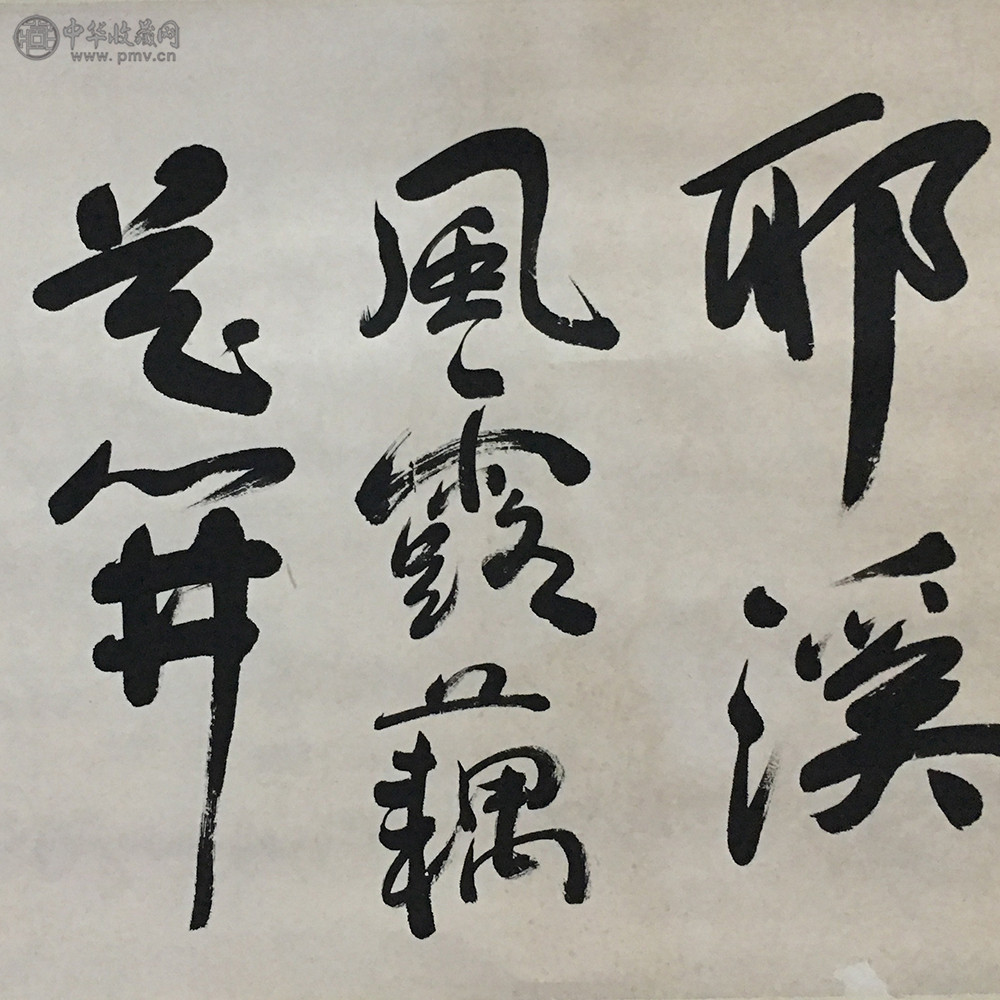 耶溪
風露藕
花開
中华收藏网
www.pmv.cn